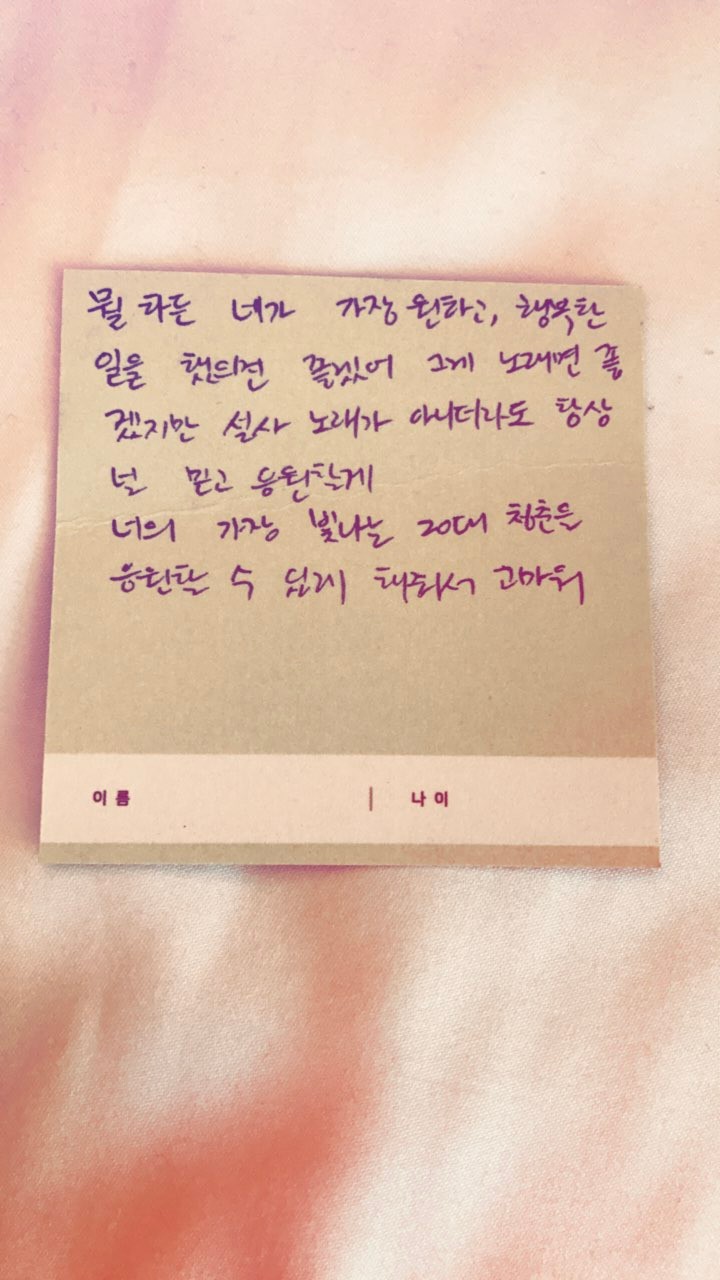 뭘 하든 네가 가장 원하고, 행복한
일을 했으면 좋겠어 그게 노래면 좋
겠지만 설사 노래가 아니더라도 항상
널 믿고 응원할게
너의 가장 빛나는 20대 청춘을
응원할 수 있게 해줘서 고마워
이름 | 나이